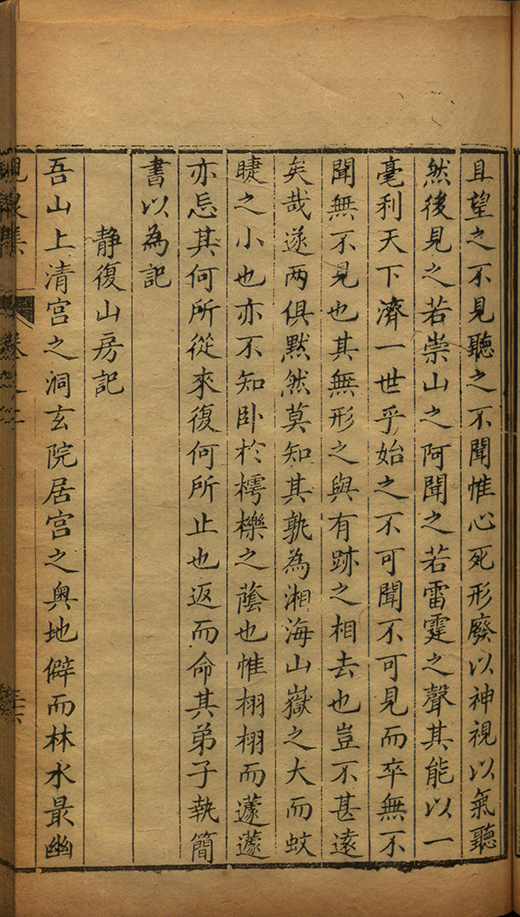 且望之不見聽之不聞惟心死形廢以神視以氣聽
然後見之若崇山之阿聞之若雷霆之聲其能以一
毫利天下濟一世乎始之不可聞不可見而卒無不
聞無不見也其無形之與有跡之相去也豈不甚遠
矣哉遂两俱黙然莫知其孰為湖海山嶽之大而蚊
睫之小也亦不知卧於樗櫟之蔭也惟栩栩而蘧蘧
亦忘其何所從來復何所止也返而命其弟子執簡
書以為記
静復山房記
吾山上清宫之洞玄院居宫之奥地僻而林水最幽